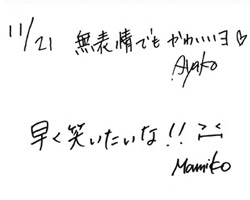 11/21 無表情でもかわいいヨ♡
Ayako
早く笑いたいな!! ><
Mamiko